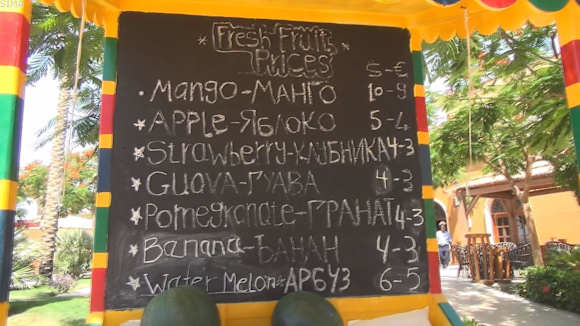 Fresh Fruit
Prices
$ - €
Mango - МАНГО 10 - 9
APPLE - ЯБЛОКО 5 - 4
Strawberry - КЛУБНИКА 4 - 3
GUAVA - ГУАВА 4 - 3
Pomegranate - ГРАНАТ 4 - 3
Banana - БАНАН 4 - 3
Water Melon - АРБУЗ 6 - 5